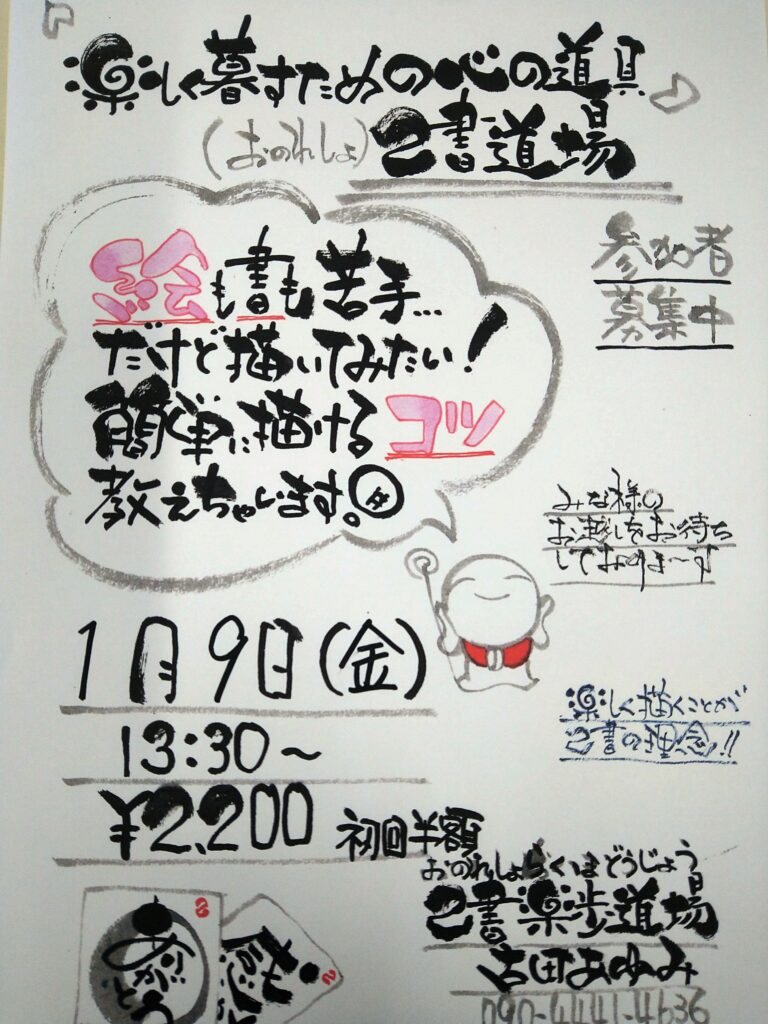 楽しく暮すための心の道具♪
(おのれしょ)己書道場
絵も書も苦手…
だけど描いてみたい!
簡単に描けるコツ
教えちゃいます。
参加者
募集中
みな様の
お越しをお待ち
しておりま〜す
1月9日(金)
13:30〜
¥2,200 初回半額
楽しく描くことが
己書の理念!!
おのれしょらくほどうじょう
己書楽歩道場
古町あゆみ
090-4441-4636
ありがとう